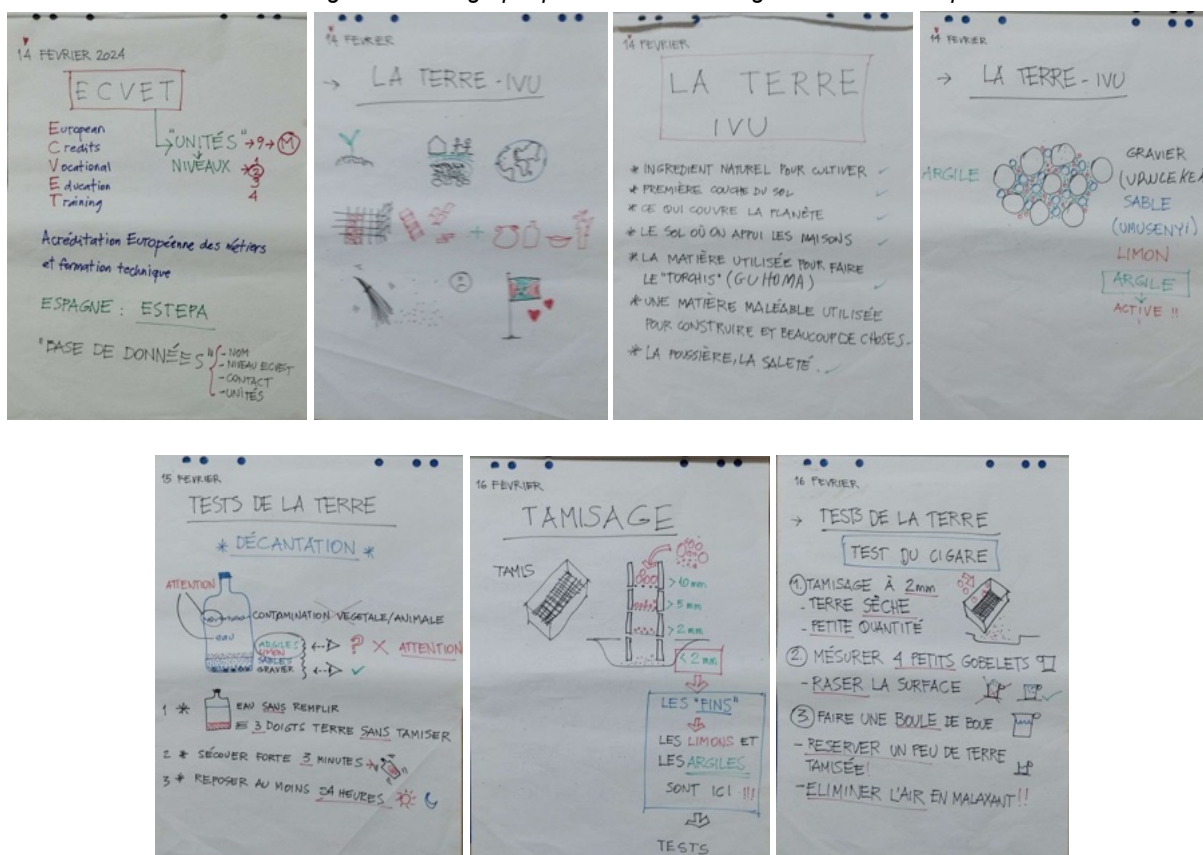 14 FEVRIER 2024
ECVET
European
Credits
Vocational
Education
Training
"UNITÉS" → 9 → M
NIVEAUX
1
2
3
4
Acréditation Européenne des métiers
et formation technique
ESPAGNE : ESTEPA
"BASE DE DONNÉES"
- NOM
- NIVEAU ECVET
- CONTACT
- UNITÉS
14 FEVRIER
→ LA TERRE - IVU
14 FEVRIER
LA TERRE
IVU
* INGREDIENT NATUREL POUR CULTIVER
* PREMIÈRE COUCHE DU SOL
* CE QUI COUVRE LA PLANÈTE
* LE SOL OÙ ON APPUI LES MAISONS
* LA MATIÈRE UTILISÉE POUR FAIRE
LE "TORCHIS" (GUHOMA)
* UNE MATIÈRE MALÉABLE UTILISÉE
POUR CONSTRUIRE ET BEAUCOUP DE CHOSES
* LA POUSSIÈRE, LA SALETÉ.
14 FEVRIER
→ LA TERRE - IVU
ARGILE
GRAVIER
SABLE
(UMUSENYI)
LIMON
ARGILE
ACTIVE !!
15 FEVRIER
TESTS DE LA TERRE
* DÉCANTATION *
ATTENTION
CONTAMINATION VEGETALE/ANIMALE
eau
ARGILES
LIMON
SABLES
GRAVIER
? X ATTENTION
1 * EAU SANS REMPLIR
3 DOIGTS TERRE SANS TAMISER
2 * SÉCOUER FORTE 3 MINUTES
3 * REPOSER AU MOINS 24 HEURES
16 FEVRIER
TAMISAGE
TAMIS
> 10 mm
> 5 mm
> 2 mm
< 2 mm
LES "FINS"
LES LIMONS ET
LES ARGILES
SONT ICI !!!
TESTS
16 FEVRIER
→ TESTS DE LA TERRE
TEST DU CIGARE
1 TAMISAGE À 2mm
- TERRE SÈCHE
- PETITE QUANTITÉ
2 MÉSURER 4 PETITS GOBELETS
- RASER LA SURFACE
3 FAIRE UNE BOULE DE BOUE
- RESERVER UN PEU DE TERRE
TAMISÉE!
- ELIMINER L'AIR EN MALAXANT!!